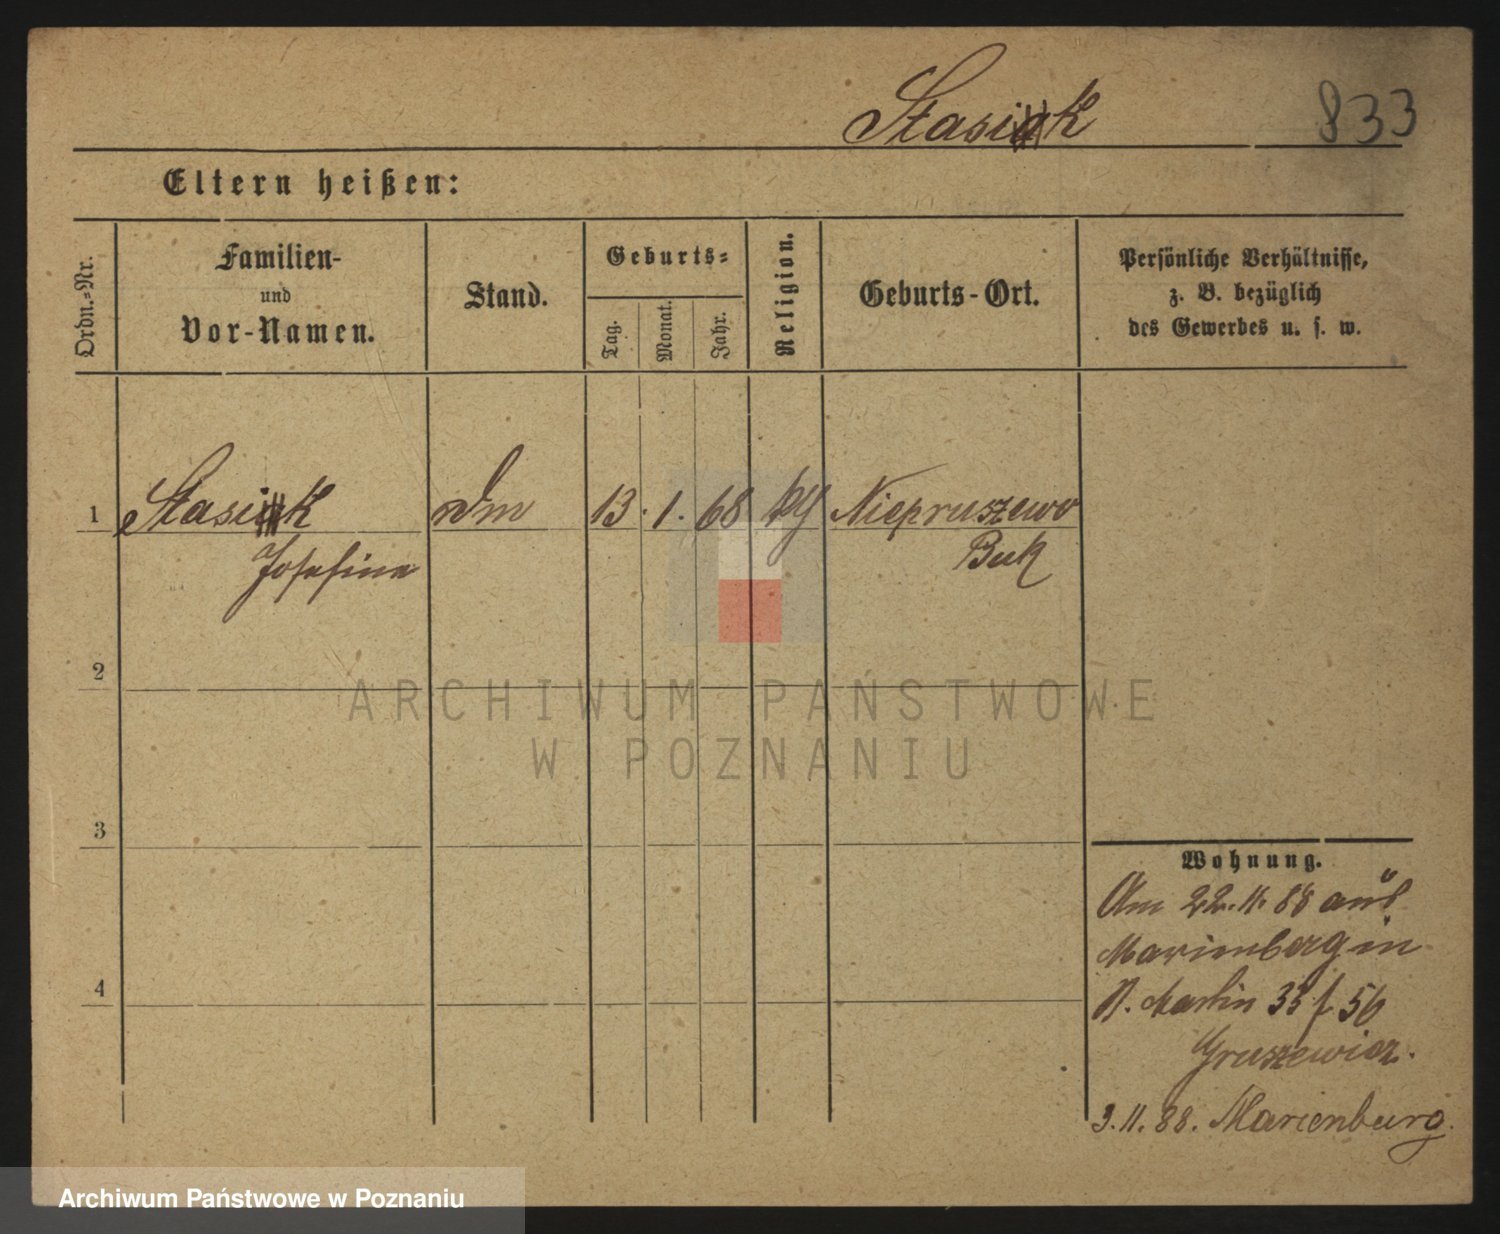 Stasiak
833
Eltern heißen:
Ordn.-Nr.
Familien-
und
Vor-Namen.
Stand.
Geburts-
Tag.
Monat.
Jahr.
Religion.
Geburts-Ort.
Persönliche Verhältnisse,
z. B. bezüglich
des Gewerbes u. s. w.
1
Stasiak
13. 1. 68
Niepruszewo
Josefina
Buk
2
ARCHIWUM PAŃSTWOWE
W POZNANIU
3
4
Wohnung.
Am 22.11.88 aus
in
St. Martin 33 f 56
Gruszewicz.
3.11.88. Marienburg.
Archiwum Państwowe w Poznaniu